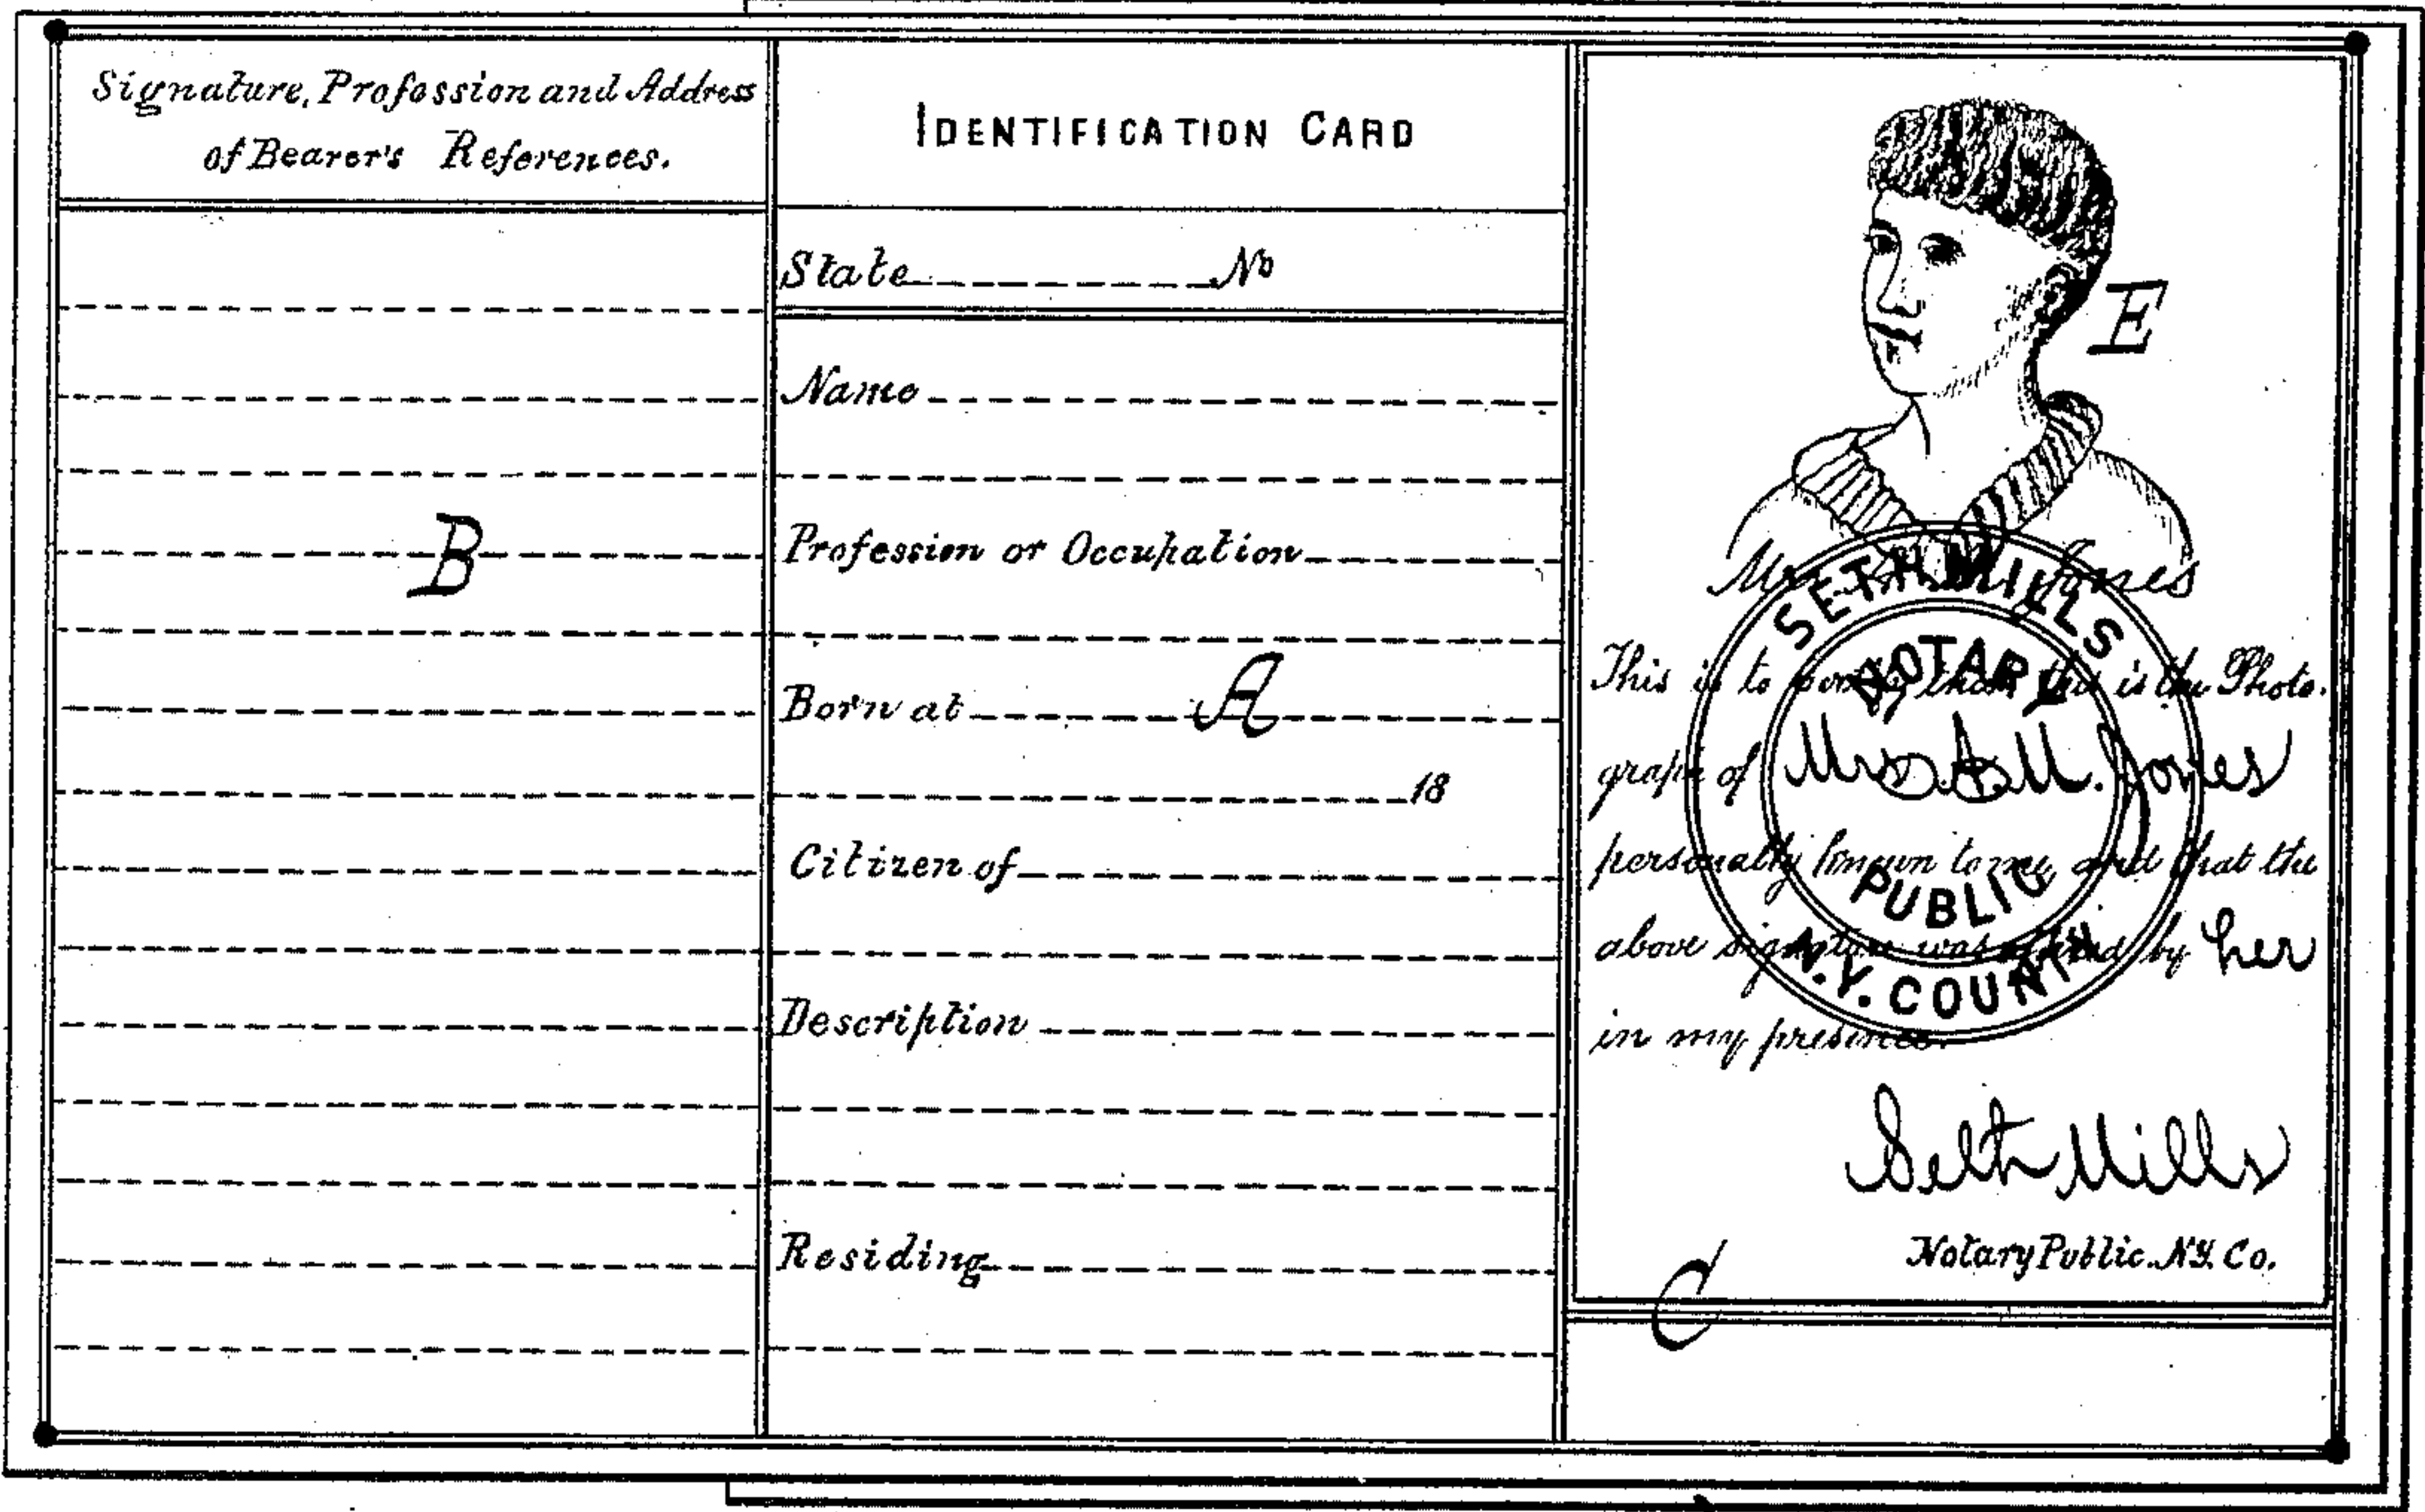 Signature, Profession and Address
of Bearer's References.
B
IDENTIFICATION CARD
State No
Name
Profession or Occupation
Born at A
18
Citizen of
Description
Residing
E
Jones
SETH MILLS
NOTARY
PUBLIC
N.Y. COUNTY
This is to certify that this is the Photo.
graph of Mrs. A. M. Jones
personally known to me, and that the
above signature was signed by her
in my presence.
Seth Mills
Notary Public. N.Y. Co.
C